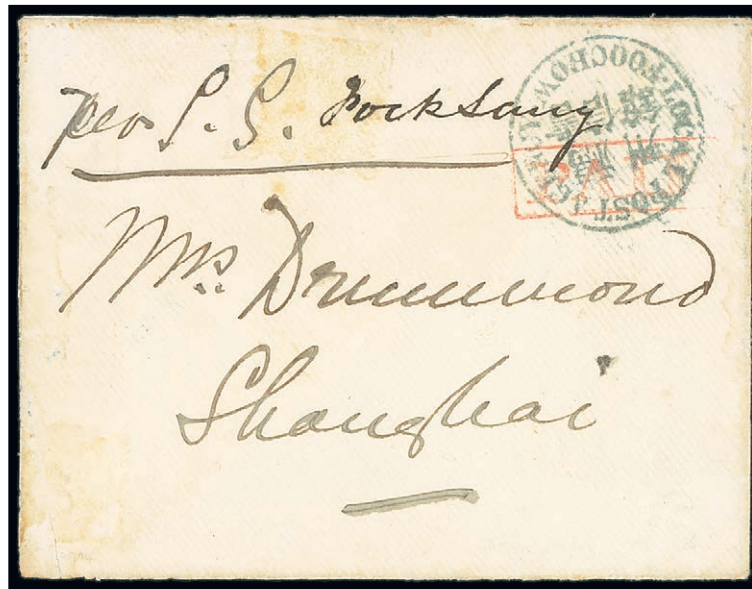 per S.S. Fock Sang
LOCAL POST AGENCY FOOCHOW
PAID
Mrs. Drummond
Shanghai